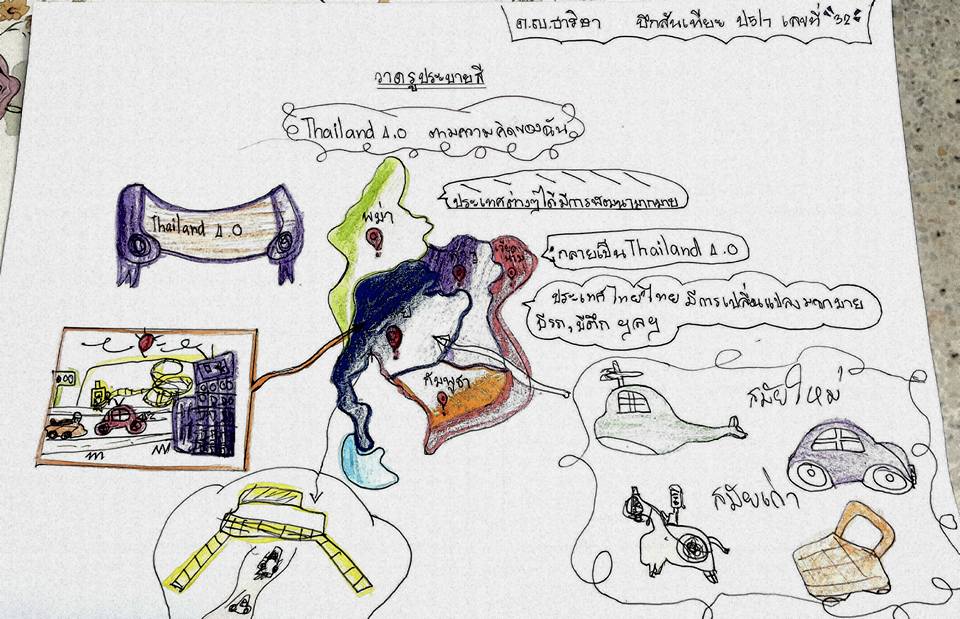 ด.ญ.ชาริษา ป5/7 เลขที่ "32"
วาดรูประบายสี
Thailand 4.0 ตามความคิดของฉัน
Thailand 4 0
พม่า
ประเทศต่างๆได้มีการพัฒนามากมาย
เวียดนาม
กลายเป็น Thailand 4.0
ประเทศไทย มีการเปลี่ยนแปลงมากมาย
มีรถ, มีตึก ฯลฯ
กัมพูชา
สมัยใหม่
สมัยเก่า